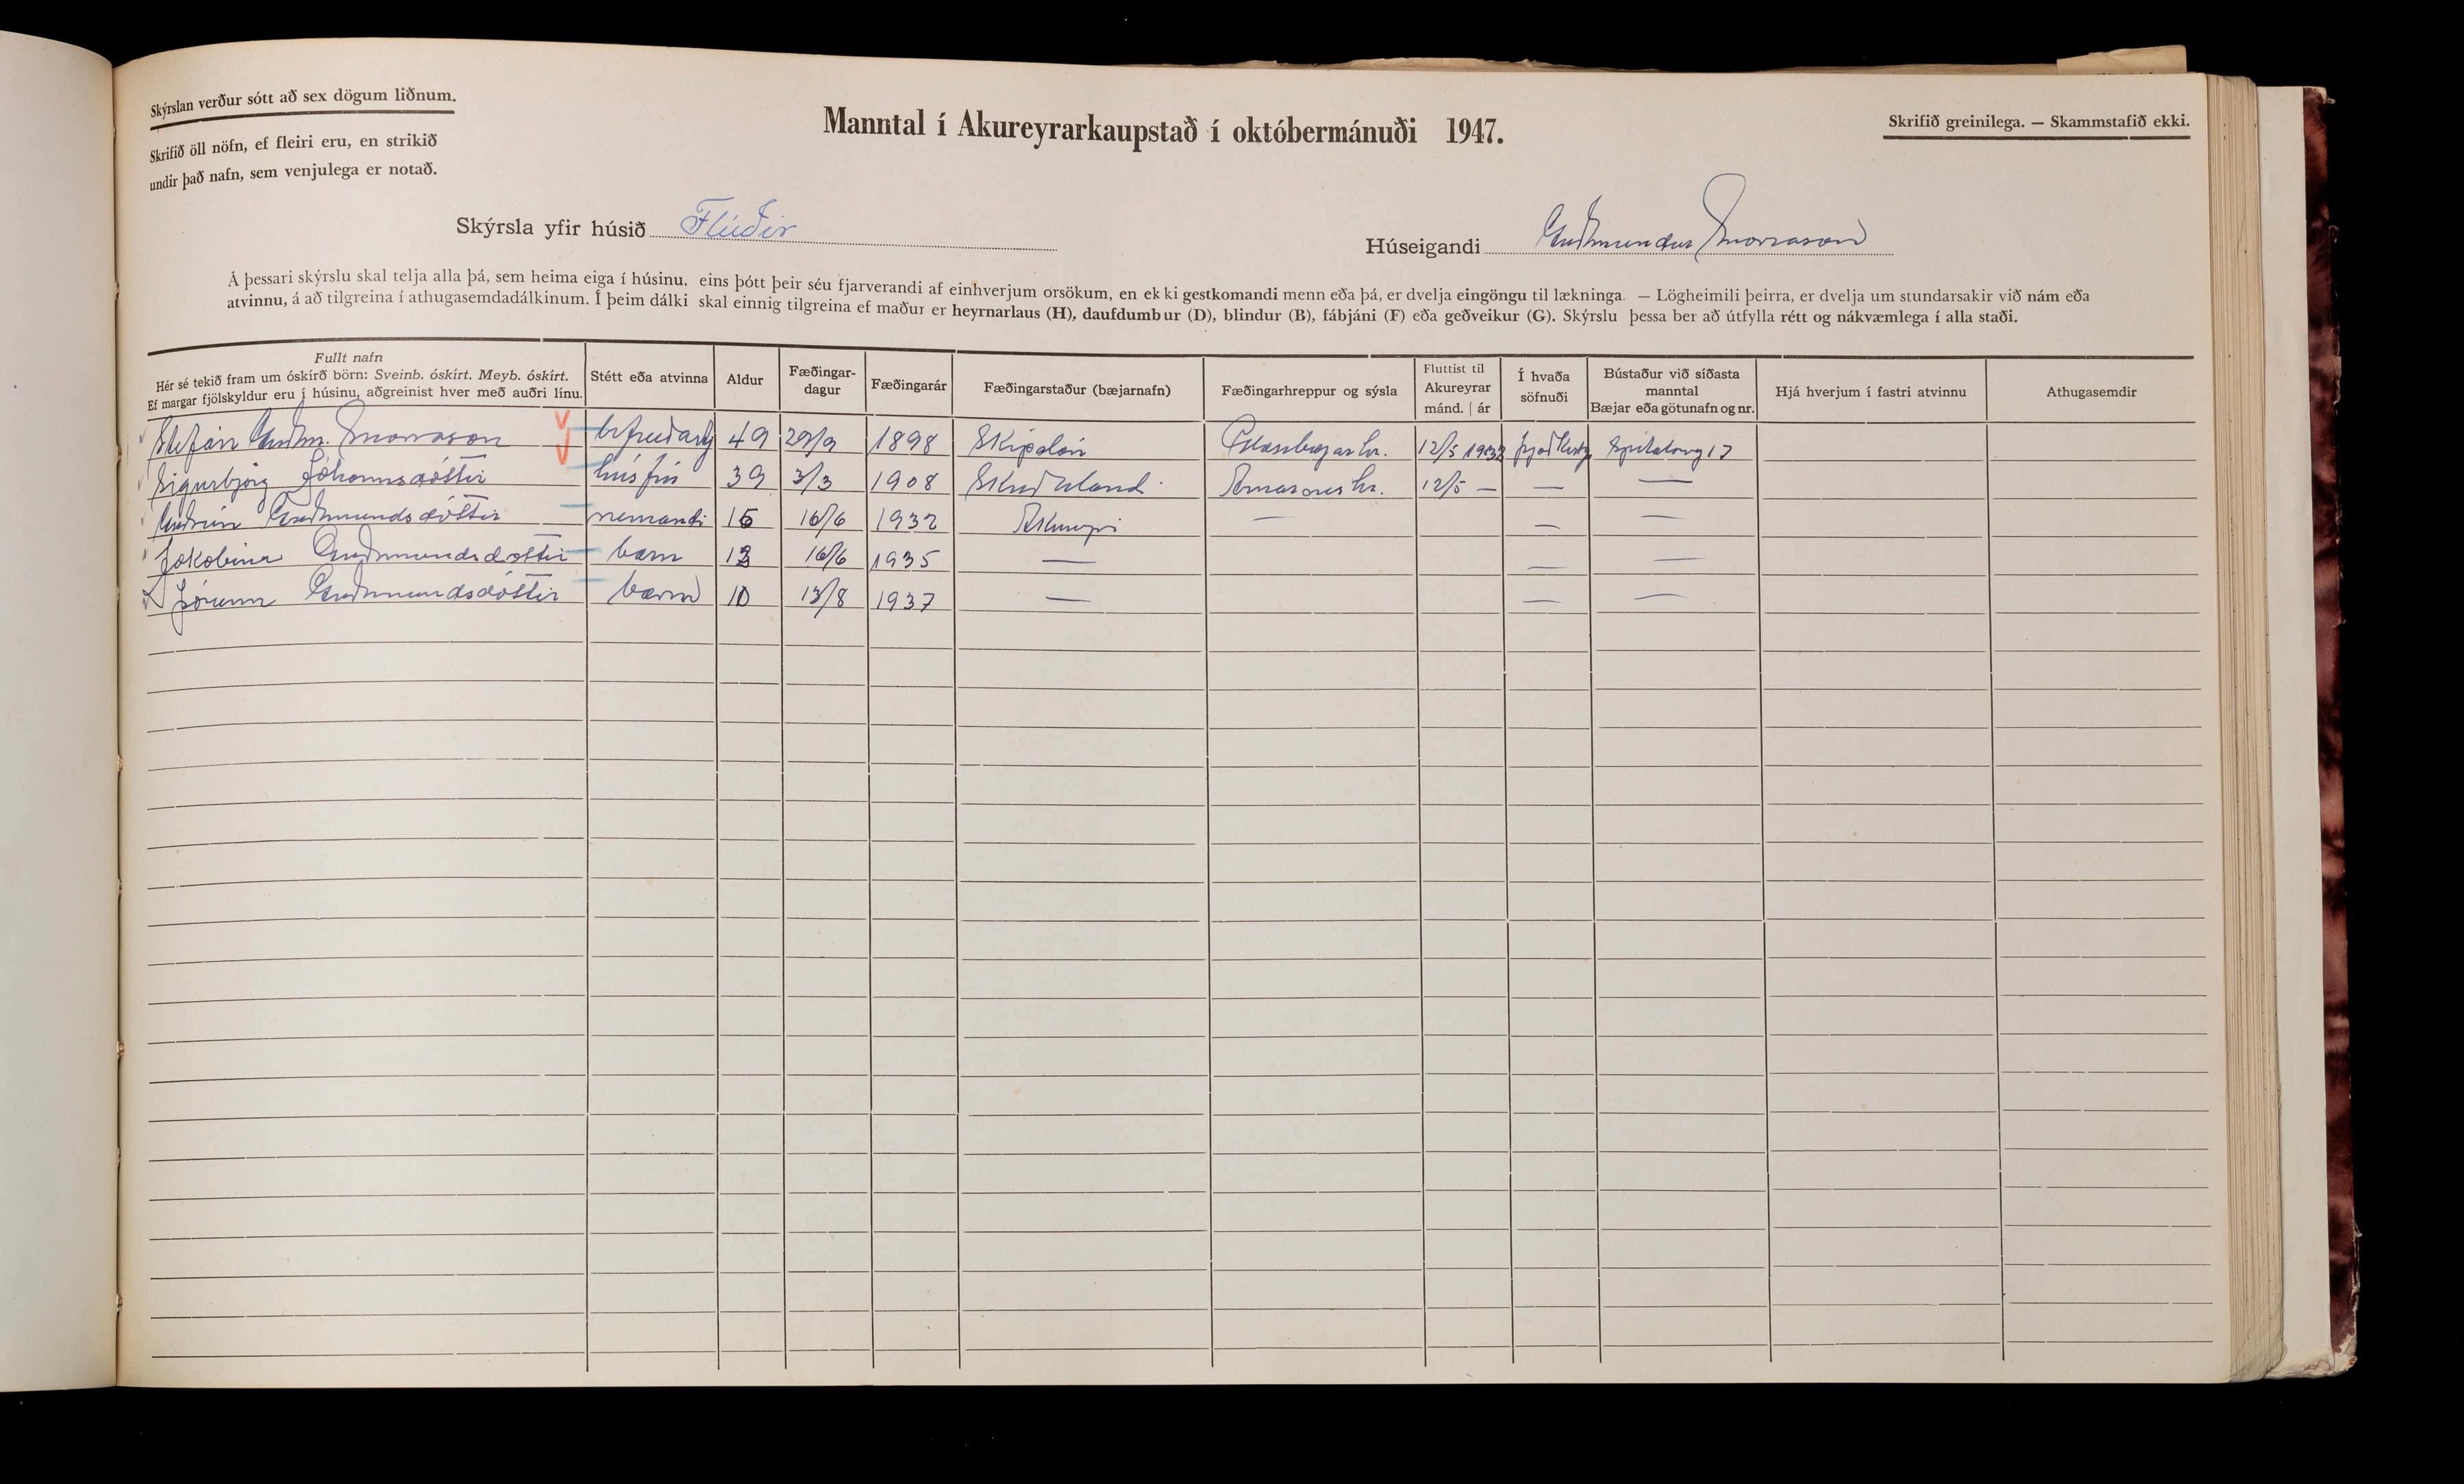 Skýrslan verður sótt að sex dögum liðnum.
Skrifið öll nöfn, ef fleiri eru, en strikið
undir það nafn, sem venjulega er notað.
Manntal í Akureyrarkaupstað í októbermánuði 1947.
Skrifið greinilega. — Skammstafið ekki.
Skýrsla yfir húsið Flúðir
Húseigandi Guðmundur Snorrason
Á þessari skýrslu skal telja alla þá, sem heima eiga í húsinu, eins þótt þeir séu fjarverandi af einhverjum orsökum, en ekki gestkomandi menn eða þá, er dvelja eingöngu til lækninga. — Lögheimili þeirra, er dvelja um stundarsakir við nám eða
atvinnu, á að tilgreina í athugasemdadálkinum. Í þeim dálki skal einnig tilgreina ef maður er heyrnarlaus (H), daufdumbur (D), blindur (B), fábjáni (F) eða geðveikur (G). Skýrslu þessa ber að útfylla rétt og nákvæmlega í alla staði.
Fullt nafn
Hér sé tekið fram um óskírð börn: Sveinb. óskírt. Meyb. óskírt.
Ef margar fjölskyldur eru í húsinu, aðgreinist hver með auðri línu.
Stétt eða atvinna
Aldur
Fæðingar-
dagur
Fæðingarár
Fæðingarstaður (bæjarnafn)
Fæðingarhreppur og sýsla
Fluttist til
Akureyrar
mánd. | ár
Í hvaða
söfnuði
Bústaður við síðasta
manntal
Bæjar eða götunafn og nr.
Hjá hverjum í fastri atvinnu
Athugasemdir
Stefán Guðm. Snorrason 49 29/9 1898 Skipalón Glæsibæjarhr. 12/5 1932 þjóðkirkj Spítalaveg 17
Sigurbjörg Jóhannsdóttir húsfrú 39 3/3 1908 Skriðuland Arnarneshr. 12/5 — — —
Guðrún Guðmundsdóttir nemandi 15 16/6 1932 Akureyri — — —
Jakobína Guðmundsdóttir barn 12 16/6 1935 — — —
Jórunn Guðmundsdóttir barn 10 13/8 1937 — — —